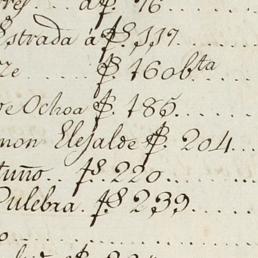 á f.^s 76
Estrada á f.^s 117
f.^s 160 b^ta
de Ochoa f.^s 185
mon Elejalde f.^s 204
tuño f.^s 220
Culebra f.^s 239